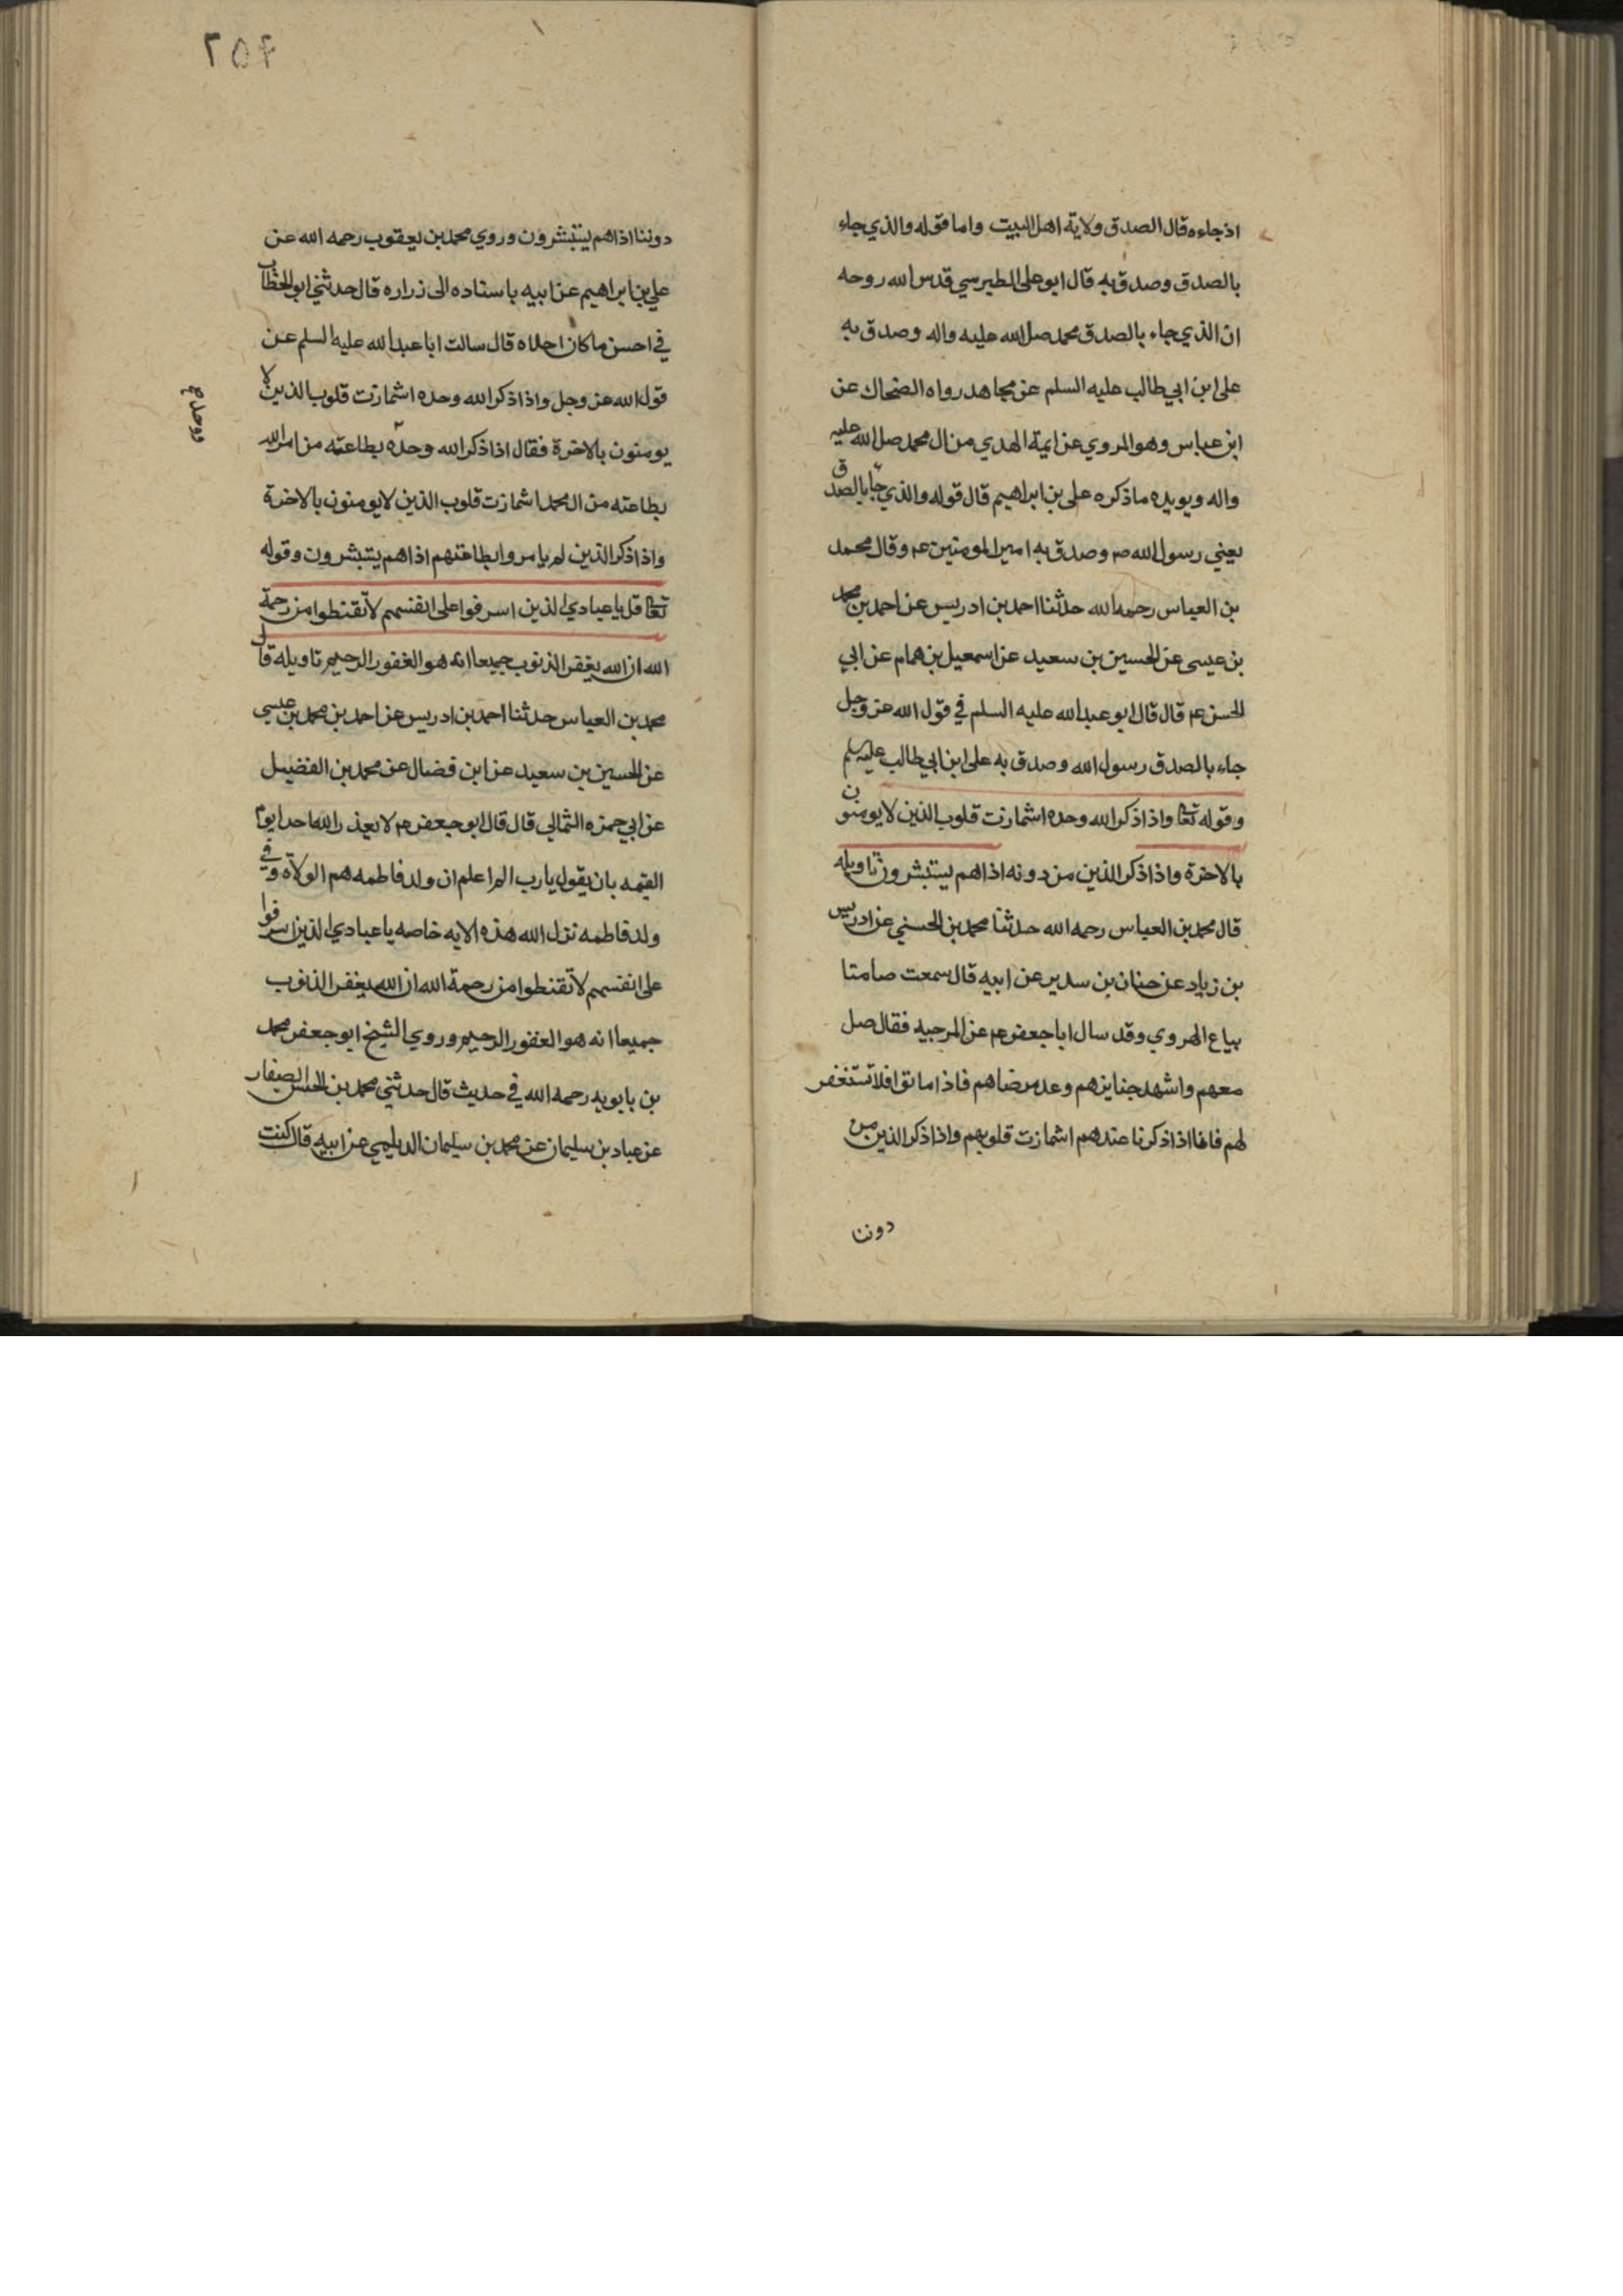 اذ جاءه قال الصدق ولاية اهل البيت واما قوله والذي جاء
بالصدق وصدق به قال ابو على الطبرسي قدس الله روحه
ان الذي جاء بالصدق محمد صل الله عليه واله وصدق به
على ابن ابي طالب عليه السلم عن مجاهد رواه الضحاك عن
ابن عباس وهو المروي عن ايمة الهدي من ال محمد صل الله عليه
واله ويويده ما ذكره على بن ابراهيم قال قوله والذي جآ بالصدق
يعني رسول الله صم وصدق به امير المومنين عم وقال محمد
بن العباس رحمه الله حدثنا احمد بن ادريس عن احمد بن محمد
بن عيسى عن الحسين بن سعيد عن اسمعيل بن همام عن ابي
الحسن عم قال قال ابو عبد الله عليه السلم في قول الله عز وجل
جاء بالصدق رسول الله وصدق به على ابن ابي طالب عليه سلم
وقوله تعا واذا ذكر الله وحده اشمازت قلوب الذين لا يومنون
بالاخرة واذا ذكر الذين من دونه اذا هم يستبشرون تاويله
قال محمد بن العباس رحمه الله حدثنا محمد بن الحسني عن ادريس
بن زياد عن حنان بن سدير عن ابيه قال سمعت صامتا
بياع الهروي وقد سال ابا جعفر عم عن المرجيه فقال صل
معهم واشهد جنايزهم وعد مرضاهم فاذا ماتوا فلا تستغفر
لهم فانا اذا ذكرنا عندهم اشمازت قلوبهم واذا ذكر الذين من
دوننا
٢٥٤
دوننا اذا هم يستبشرون وروي محمد بن يعقوب رحمه الله عن
علي بن ابراهيم عن ابيه باسناده الى زراره قال حدثني ابو الخطاب
في احسن ما كان احلاه قال سالت ابا عبد الله عليه السلم عن
قول الله عز وجل واذا ذكر الله وحده اشمازت قلوب الذين لا
يومنون بالاخرة فقال اذا ذكر الله وحده بطاعته من امر الله
بطاعته من ال محمد اشمازت قلوب الذين لا يومنون بالاخرة
واذا ذكر الذين لم يامروا بطاعتهم اذا هم يستبشرون وقوله
تعا قل يا عبادي الذين اسرفوا على انفسهم لا تقنطوا من رحمة
الله ان الله يغفر الذنوب جميعا انه هو الغفور الرحيم تاويله قال
محمد بن العباس حدثنا احمد بن ادريس عن احمد بن محمد بن عيسي
عن الحسين بن سعيد عن ابن فضال عن محمد بن الفضيل
عن ابي حمزه الثمالي قال قال ابو جعفر عم لا يعذر الله احدا يوم
القيمه بان يقول يا رب الم اعلم ان ولد فاطمه هم الولاة وفي
ولد فاطمه نزل الله هذه الايه خاصه يا عبادي الذين اسرفوا
على انفسهم لا تقنطوا من رحمة الله ان الله يغفر الذنوب
جميعا انه هو الغفور الرحيم وروي الشيخ ابو جعفر محمد
بن بابويه رحمه الله في حديث قال حدثني محمد بن الحسن الصفار
عن عباد بن سليمان عن محمد بن سليمان الديلمي عن ابيه قال كنت